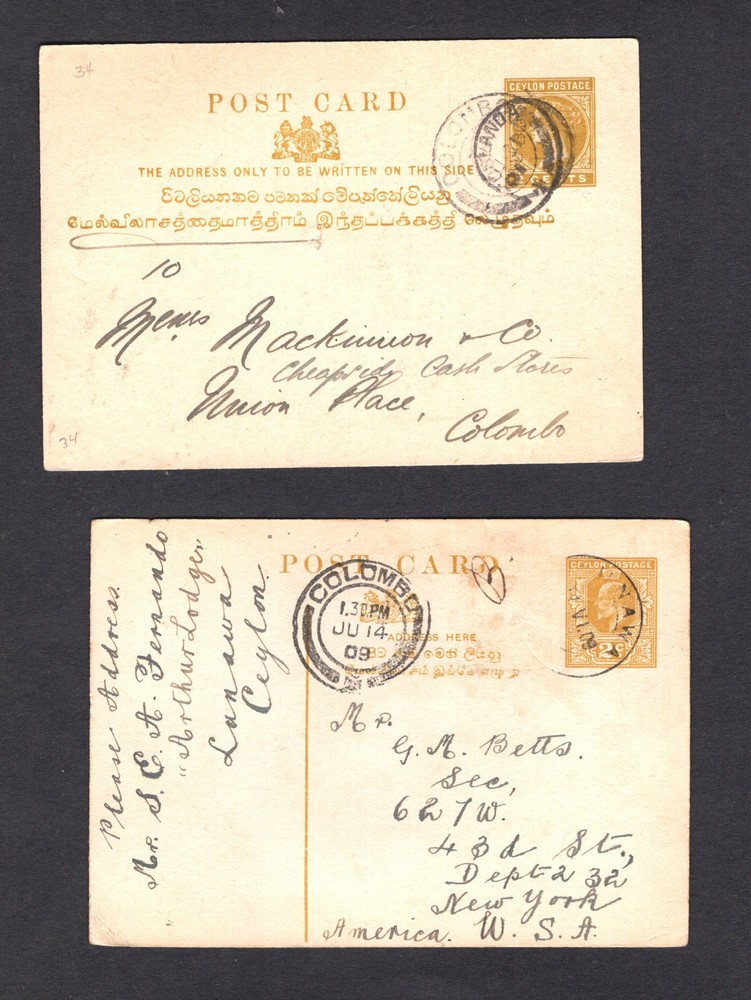 34
POST CARD
CEYLON POSTAGE
COLOMBO
THE ADDRESS ONLY TO BE WRITTEN ON THIS SIDE
CENTS
மேல்விலாசத்தைமாத்திரம் இந்தப்பக்கத்தி லெழுதவும்
10
Messrs Mackinnon & Co.
Cheapside Cash Stores
Union Place,
Colombo
34
POST CARD
CEYLON POSTAGE
COLOMBO
1.30 PM
JU 14
09
ADDRESS HERE
2c
Please Address
Mr. S. E. A. Fernando
"Arthur Lodge"
Lunawa
Ceylon.
Mr.
G. M. Betts.
Sec,
627 W.
43d St.,
Dept 2 32
New York
America. W. S. A.